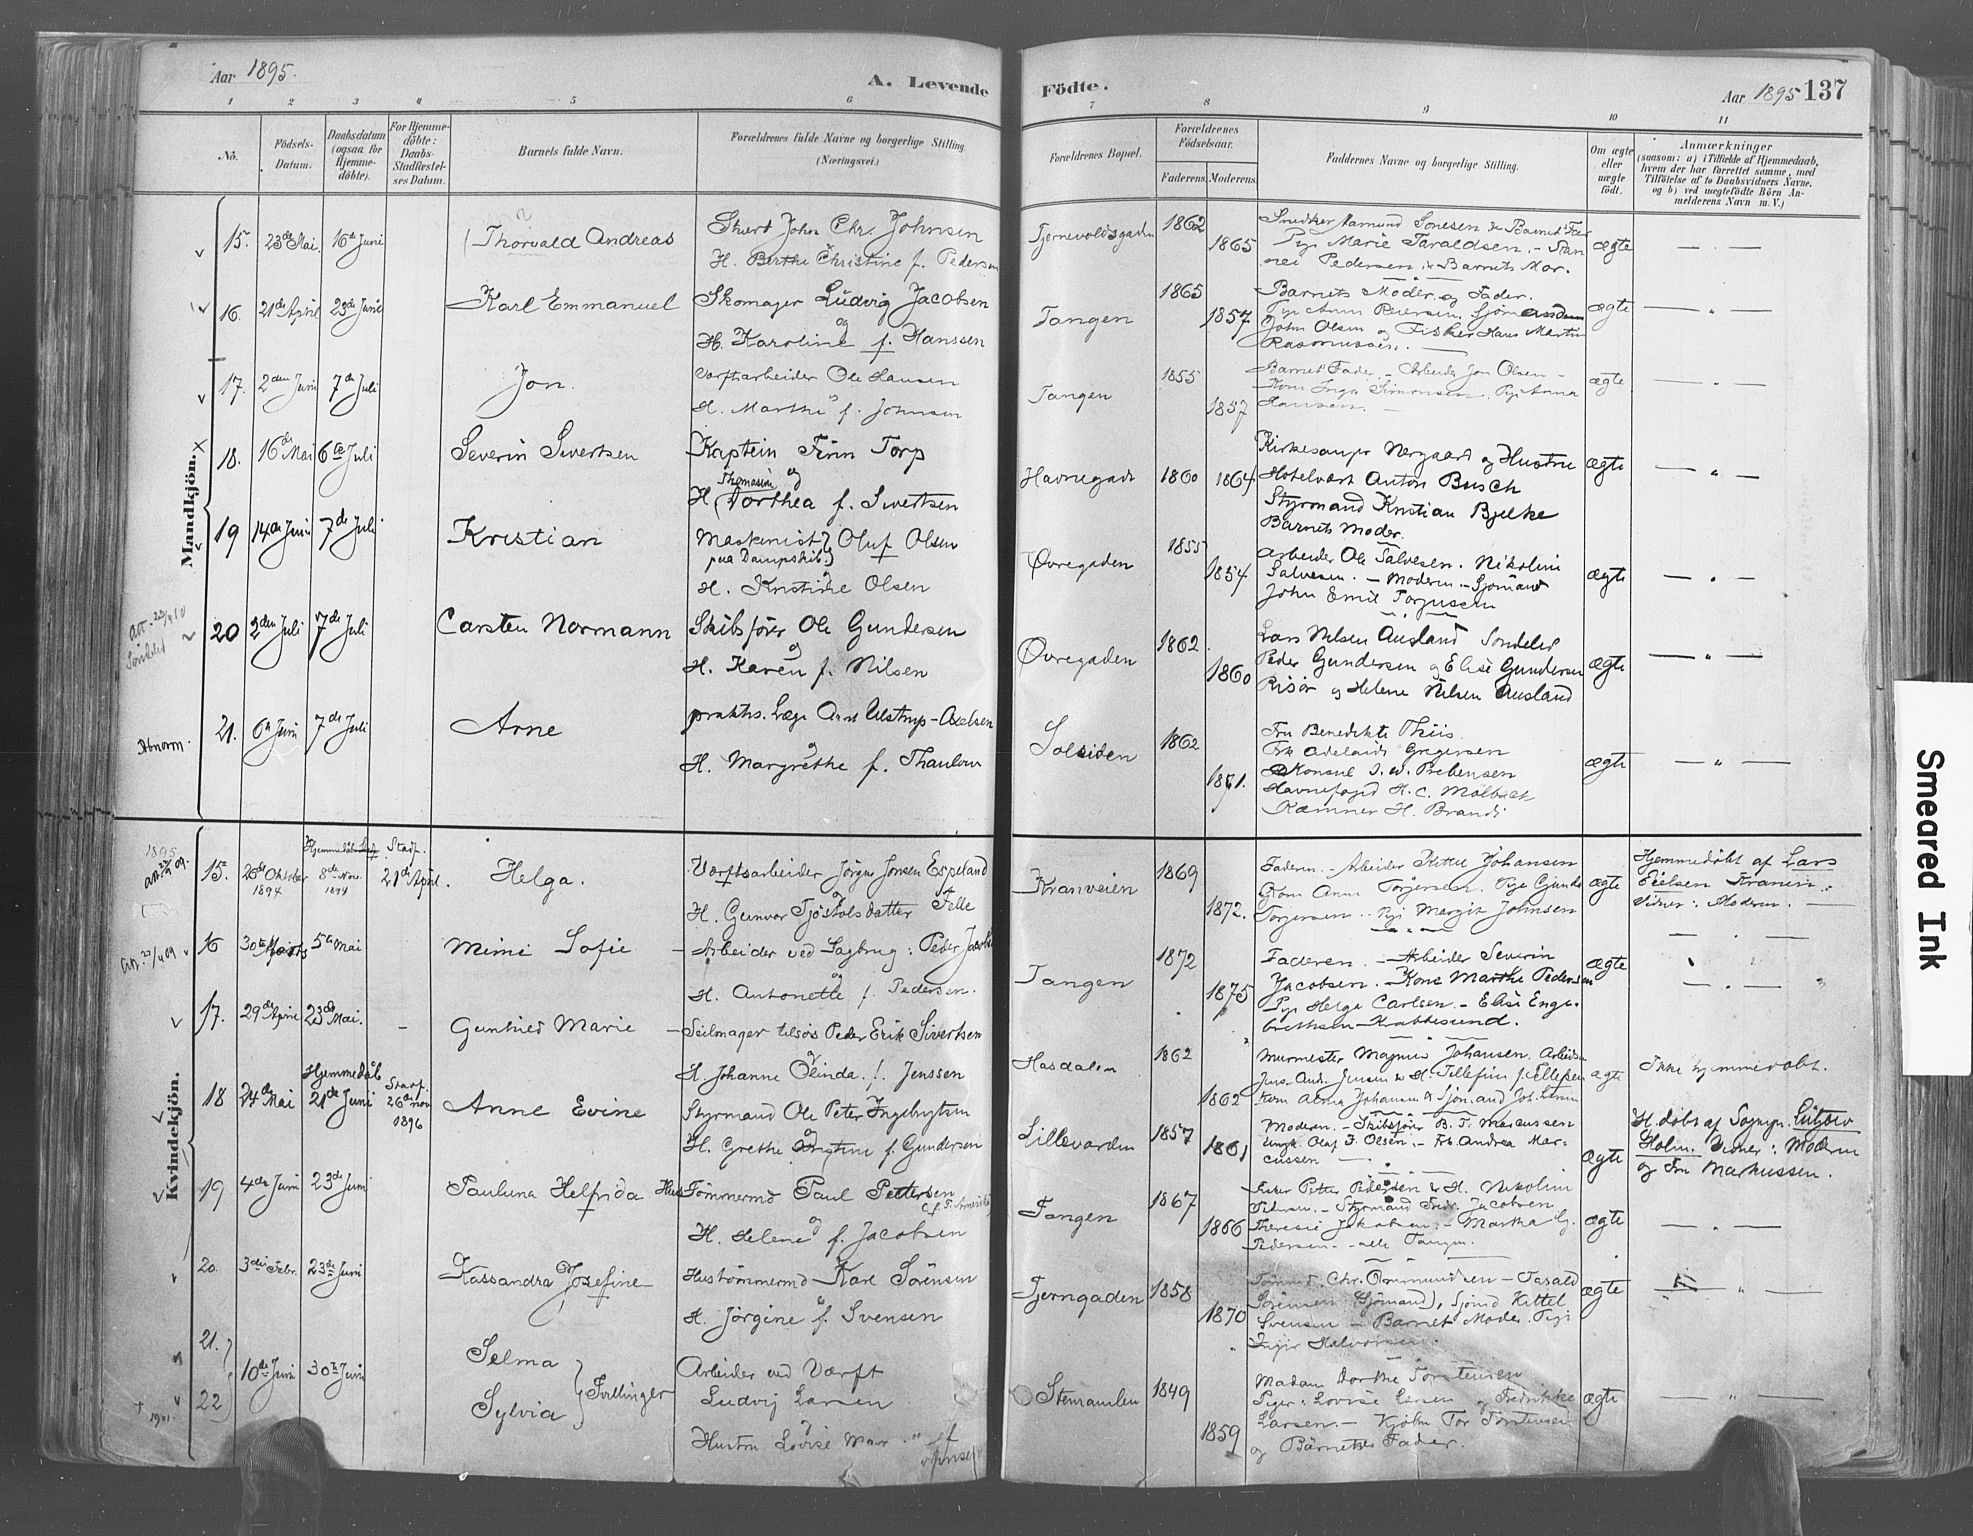 Aar 1895.
A. Levende Födte.
Aar 1895 137
1 2 3 4 5 6 7 8 9 10 11
No.
Födsels-Datum.
Daabsdatum (ogsaa for Hjemme-döbte).
For Hjemme-döbte: Daabs-Stadfæstel-ses Datum.
Barnets fulde Navn.
Forældrenes fulde Navne og borgerlige Stilling. (Næringsvei.)
Forældrenes Bopæl.
Forældrenes Födselsaar.
Faderens. Moderens.
Faddernes Navne og borgerlige Stilling.
Om ægte eller uægte födt.
Anmærkninger
(saasom: a) i Tilfælde af Hjemmedaab, hvem der har forrettet samme, med Tilföielse af to Daabsvidners Navne, og b) ved uægtefödte Börn An-melderens Navn m. V.)
Mandkjön.
15. 23de Mai. 16de Juni Thorvald Andreas
John Chr. Johnsen
H. Berthe Christine f. Pedersen
Tjernevoldsgaden 1862 1865
ægte
16. 21de April 23de Juni Karl Emmanuel
Skomager Ludvig Jacobsen
og
H. Karoline f. Hanssen
Tangen 1865 1857
Barnets Moder og Fader.
John Olsen og Fisker Hans Martin
Rasmussen.
ægte
17. 2den Juni 7de Juli Jon.
Værftsarbeider Ole Hansen
H. Marthe f. Johnsen
Tangen 1855 1857
Barnets Fader. - Arbeider Jon Olsen -
Kone Inger Simonsen. Pige Anna
Hansen.
ægte
18. 16de Mai 6te Juli Severin Sivertsen
Kaptein Finn Torp
Thomasine og
H. Dorthea f. Sivertsen
Havnegade 1860 1864
Kirkesanger Nergaard og Hustru
Hotelvært Anton Busch
Styrmand Kristian Bjelke
Barnets Moder.
ægte
19 14de Juni 7de Juli Kristian
Maskinist Oluf Olsen
paa Dampskib
H. Kristine Olsen
Øvregaden 1855 1854
Arbeider Ole Salvesen. Nikolini
Salvesen. - Moderen - Sjømand
John Emil Torjusen
ægte
Att. 22/4 10
Søndeled
20 2den Juli 7de Juli Carsten Normann
Skibsfører Ole Gundersen
og
H. Karen f. Nilsen
Øvregaden 1862. 1860
Lars Nilsen Ausland Sondeled
Peder Gundersen og Elise Gundersen
Risør og Helene Nilsen Ausland
ægte
Abnorm.
21. 6te Juni 7de Juli Arne
prakts. Læge Arnt Ulstrup-Axelsen
og
H. Margrethe f. Thaulow
Solsiden 1862 1871.
Fru Benedikte Thiis
Frk Adelaide Gregersen
Konsul J. W. Prebensen
Havnefoged H. C. Mølbach
Kæmner H. Brandi
ægte
Kvindekjön.
1895
att. 22/4 09.
15. 26de Oktober 1894
Hjemmedøbt 8de Nov. 1894
Stadf. 21de April.
Helga.
Værftsarbeider Jörgen Jonsen Espeland
og
H. Gunvor Tjöstolsdatter Felle
Kranveien 1869 1872.
Faderen. - Arbeider Petter Johansen
Kone Anne Torgersen. Pige Gunda
Torgersen. Pige Margit Johnsen
ægte
Hjemmedöbt af Lars
Eielsen Kranen.
Vidner: Moderen.
Att. 22/4 09
16 30te Marts 5te Mai Mimi Sofie
- Arbeider ved Sagbrug: Peder Jacobsen
og
H. Antonette f. Pedersen.
Tangen 1872 1875
Faderen. - Arbeider Severin
Jacobsen. - Kone Marthe Pedersen
Pige Helga Carlsen. - Elise Enge-
brethsen Krabbesund.
ægte
17. 29de April 23de Mai. - Gunhild Marie
- Seilmager tilsøs Peder Erik Sivertsen
og
H. Johanne Olinda f. Jenssen
Hasdalen 1862 1862
Murmester Magnus Johansen. Arbeider
Jens And. Jensen & H. Tellefine f. Tellefsen
ægte
Ikke hjemmedöbt.
18 24de Mai
Hjemmedåb 21de Juni
Stadf. 26de nov 1896
Anne Evine
Styrmand Ole Peter Ingebrigtsen
og
H. Grethe Kristine f. Gundersen
Lillevarden 1857 1861
Moderen. - Skibsfører B. T. Marcussen
Ungk. Olaf J. Olsen. - Frk. Andrea Mar-
cussen
ægte
H. döbt af Sogneprest Lützow
Holm. Vidner: Moderen
og Fru Markussen.
19 4de Juni 23de Juni Pauluna Helfrida
Hus Tömmermd Paul Pettersen
og
H. Helene f. Jacobsen
Tangen 1867 1866
Fisker Petter Pedersen & H. Nikolini
Pedersen. - Styrmand Fredr. Jacobsen
Therese Jakobsen. - Martha G.
Pedersen. - alle Tangen.
ægte
20. 3die Febr. 23de Juni Kassandra Josefine
Hustömmermd Karl Sörensen
og
H. Jörgine f. Svensen
Tjerngaden 1858 1870
Tömmd. Chr. Ommundsen - Tarald
Sörensen (Sjömand), Sjömd Kittel
Svensen - Barnets Moder. Pige
Inger Halvorsen.
ægte
21.
22
10de Juni 30te Juni
Selma
Sylvia } Tvillinger
Arbeider ved Værft
Ludvig Larsen
og
Hustru Lovise Marie
Stensamlen 1849 1859
Madam Dorthe Torstensen
Piger: Lovise Larsen og Fredrikke
Larsen. - Kjøbm. Tor Torstensen
og Barnets Fader.
ægte
† 1901.
Smeared Ink